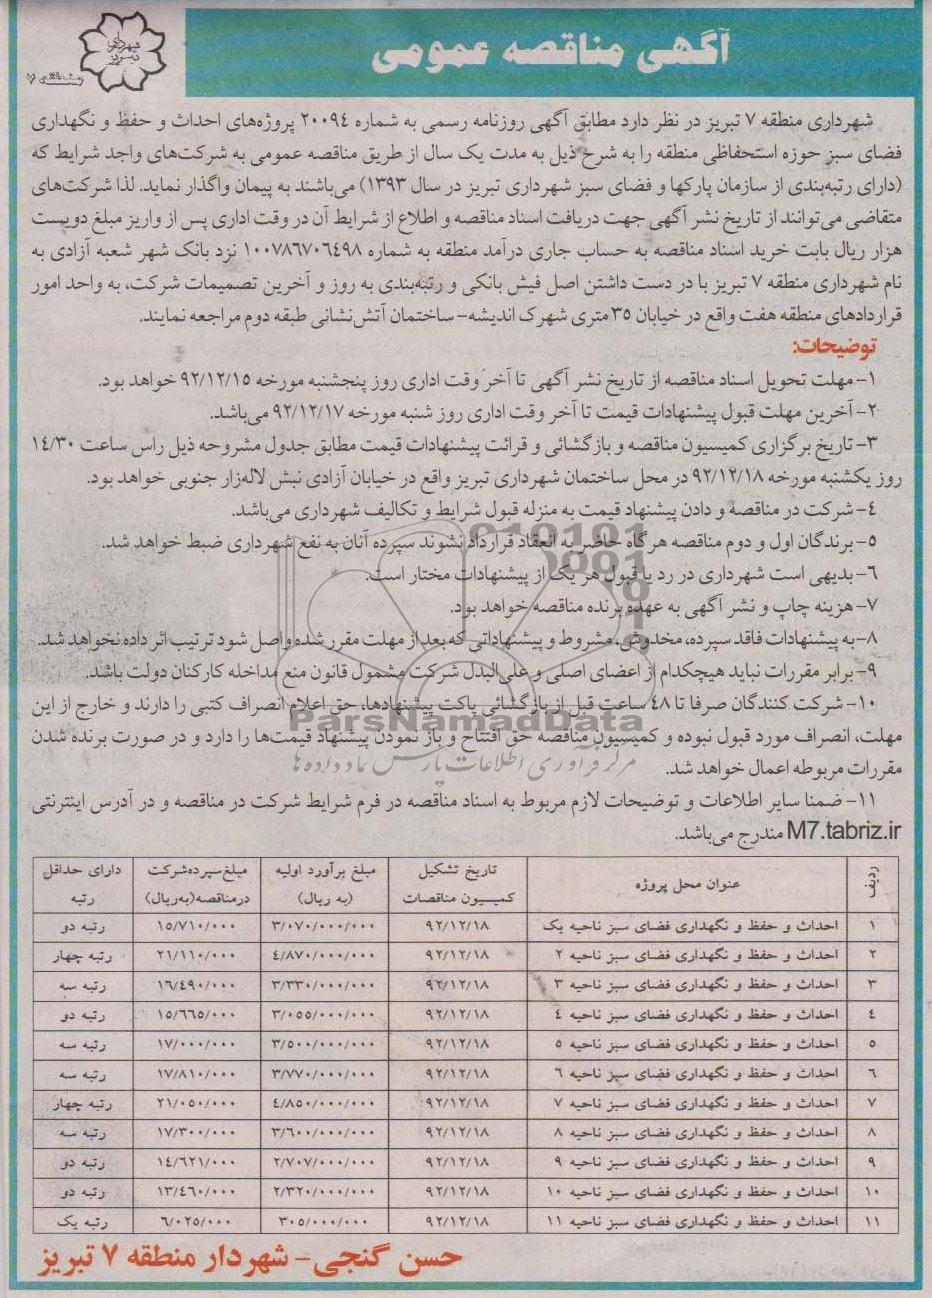 آگهی مناقصه عمومی
شهرداری
تبریز
منطقه ۷
شهرداری منطقه ۷ تبریز در نظر دارد مطابق آگهی روزنامه رسمی به شماره ۲۰۰۹٤ پروژه‌های احداث و حفظ و نگهداری
فضای سبز حوزه استحفاظی منطقه را به شرح ذیل به مدت یک سال از طریق مناقصه عمومی به شرکت‌های واجد شرایط که
(دارای رتبه‌بندی از سازمان پارکها و فضای سبز شهرداری تبریز در سال ۱۳۹۳) می‌باشند به پیمان واگذار نماید. لذا شرکت‌های
متقاضی می‌توانند از تاریخ نشر آگهی جهت دریافت اسناد مناقصه و اطلاع از شرایط آن در وقت اداری پس از واریز مبلغ دویست
هزار ریال بابت خرید اسناد مناقصه به حساب جاری درآمد منطقه به شماره ۱۰۰۷۸٦۷۰٦٤۹۸ نزد بانک شهر شعبه آزادی به
نام شهرداری منطقه ۷ تبریز با در دست داشتن اصل فیش بانکی و رتبه‌بندی به روز و آخرین تصمیمات شرکت، به واحد امور
قراردادهای منطقه هفت واقع در خیابان ۳۵ متری شهرک اندیشه- ساختمان آتش‌نشانی طبقه دوم مراجعه نمایند.
توضیحات:
۱- مهلت تحویل اسناد مناقصه از تاریخ نشر آگهی تا آخر وقت اداری روز پنجشنبه مورخه ۹۲/۱۲/۱۵ خواهد بود.
۲- آخرین مهلت قبول پیشنهادات قیمت تا آخر وقت اداری روز شنبه مورخه ۹۲/۱۲/۱۷ می‌باشد.
۳- تاریخ برگزاری کمیسیون مناقصه و بازگشائی و قرائت پیشنهادات قیمت مطابق جدول مشروحه ذیل راس ساعت ۱٤/۳۰
روز یکشنبه مورخه ۹۲/۱۲/۱۸ در محل ساختمان شهرداری تبریز واقع در خیابان آزادی نبش لاله‌زار جنوبی خواهد بود.
٤- شرکت در مناقصه و دادن پیشنهاد قیمت به منزله قبول شرایط و تکالیف شهرداری می‌باشد.
۵- برندگان اول و دوم مناقصه هرگاه حاضر به انعقاد قرارداد نشوند سپرده آنان به نفع شهرداری ضبط خواهد شد.
٦- بدیهی است شهرداری در رد یا قبول هر یک از پیشنهادات مختار است.
۷- هزینه چاپ و نشر آگهی به عهده برنده مناقصه خواهد بود.
۸- به پیشنهادات فاقد سپرده، مخدوش، مشروط و پیشنهاداتی که بعد از مهلت مقرر شده واصل شود ترتیب اثر داده نخواهد شد.
۹- برابر مقررات نباید هیچکدام از اعضای اصلی و علی‌البدل شرکت مشمول قانون منع مداخله کارکنان دولت باشد.
۱۰- شرکت کنندگان صرفا تا ٤۸ ساعت قبل از بازگشائی پاکت پیشنهادها، حق اعلام انصراف کتبی را دارند و خارج از این
مهلت، انصراف مورد قبول نبوده و کمیسیون مناقصه حق افتتاح و باز نمودن پیشنهاد قیمت‌ها را دارد و در صورت برنده شدن
مقررات مربوطه اعمال خواهد شد.
۱۱- ضمنا سایر اطلاعات و توضیحات لازم مربوط به اسناد مناقصه در فرم شرایط شرکت در مناقصه و در آدرس اینترنتی
M7.tabriz.ir مندرج می‌باشد.
ParsNamadData
مرکز فرآوری اطلاعات پارس نماد داده‌ها
ردیف | عنوان محل پروژه | تاریخ تشکیل کمیسیون مناقصات | مبلغ برآورد اولیه (به ریال) | مبلغ سپرده شرکت در مناقصه (به ریال) | دارای حداقل رتبه
۱ | احداث و حفظ و نگهداری فضای سبز ناحیه یک | ۹۲/۱۲/۱۸ | ۳/۰۷۰/۰۰۰/۰۰۰ | ۱۵/۷۱۰/۰۰۰ | رتبه دو
۲ | احداث و حفظ و نگهداری فضای سبز ناحیه ۲ | ۹۲/۱۲/۱۸ | ٤/۸۷۰/۰۰۰/۰۰۰ | ۲۱/۱۱۰/۰۰۰ | رتبه چهار
۳ | احداث و حفظ و نگهداری فضای سبز ناحیه ۳ | ۹۲/۱۲/۱۸ | ۳/۳۳۰/۰۰۰/۰۰۰ | ۱٦/٤۹۰/۰۰۰ | رتبه سه
٤ | احداث و حفظ و نگهداری فضای سبز ناحیه ٤ | ۹۲/۱۲/۱۸ | ۳/۰۵۵/۰۰۰/۰۰۰ | ۱۵/٦٦۵/۰۰۰ | رتبه دو
۵ | احداث و حفظ و نگهداری فضای سبز ناحیه ۵ | ۹۲/۱۲/۱۸ | ۳/۵۰۰/۰۰۰/۰۰۰ | ۱۷/۰۰۰/۰۰۰ | رتبه سه
٦ | احداث و حفظ و نگهداری فضای سبز ناحیه ٦ | ۹۲/۱۲/۱۸ | ۳/۷۷۰/۰۰۰/۰۰۰ | ۱۷/۸۱۰/۰۰۰ | رتبه سه
۷ | احداث و حفظ و نگهداری فضای سبز ناحیه ۷ | ۹۲/۱۲/۱۸ | ٤/۸۵۰/۰۰۰/۰۰۰ | ۲۱/۰۵۰/۰۰۰ | رتبه چهار
۸ | احداث و حفظ و نگهداری فضای سبز ناحیه ۸ | ۹۲/۱۲/۱۸ | ۳/٦۰۰/۰۰۰/۰۰۰ | ۱۷/۳۰۰/۰۰۰ | رتبه سه
۹ | احداث و حفظ و نگهداری فضای سبز ناحیه ۹ | ۹۲/۱۲/۱۸ | ۲/۷۰۷/۰۰۰/۰۰۰ | ۱٤/٦۲۱/۰۰۰ | رتبه دو
۱۰ | احداث و حفظ و نگهداری فضای سبز ناحیه ۱۰ | ۹۲/۱۲/۱۸ | ۲/۳۲۰/۰۰۰/۰۰۰ | ۱۳/٤٦۰/۰۰۰ | رتبه دو
۱۱ | احداث و حفظ و نگهداری فضای سبز ناحیه ۱۱ | ۹۲/۱۲/۱۸ | ۳۰۵/۰۰۰/۰۰۰ | ٦/۰۲۵/۰۰۰ | رتبه یک
حسن گنجی- شهردار منطقه ۷ تبریز